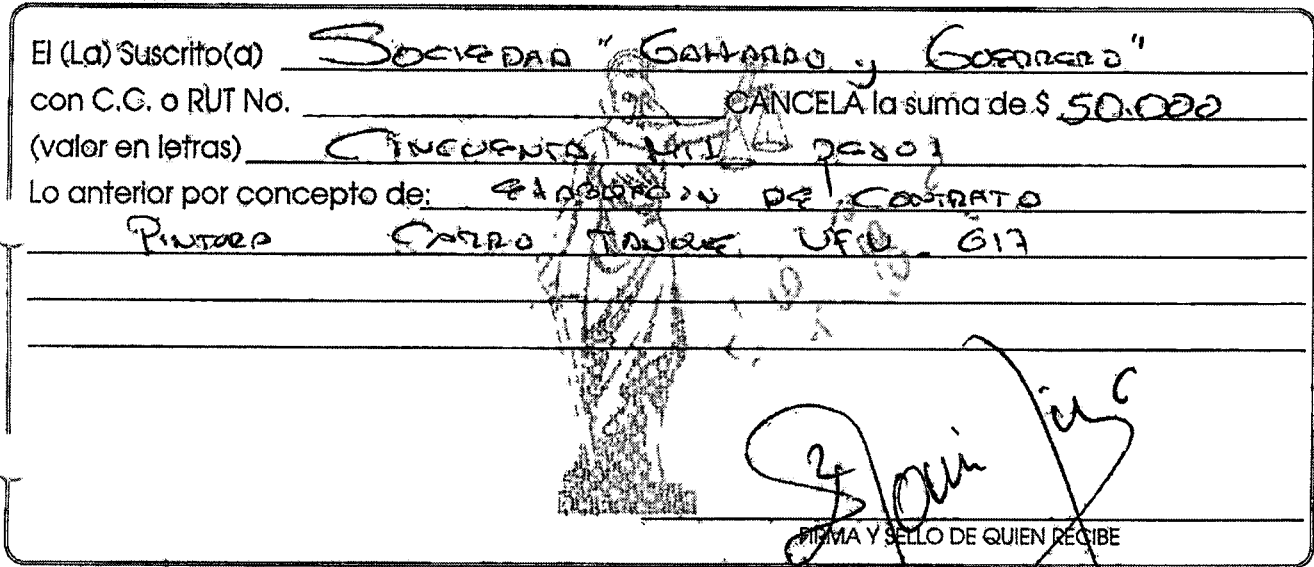 El (La) Suscrito(a) SOCIEDAD "GALLARDO y GUERRERO"
con C.C. o RUT No. CANCELA la suma de $ 50.000
(valor en letras) CINCUENTA MIL PESOS
Lo anterior por concepto de: ELABORACION DE CONTRATO
PINTURA CARRO TANQUE UFU 617
FIRMA Y SELLO DE QUIEN RECIBE